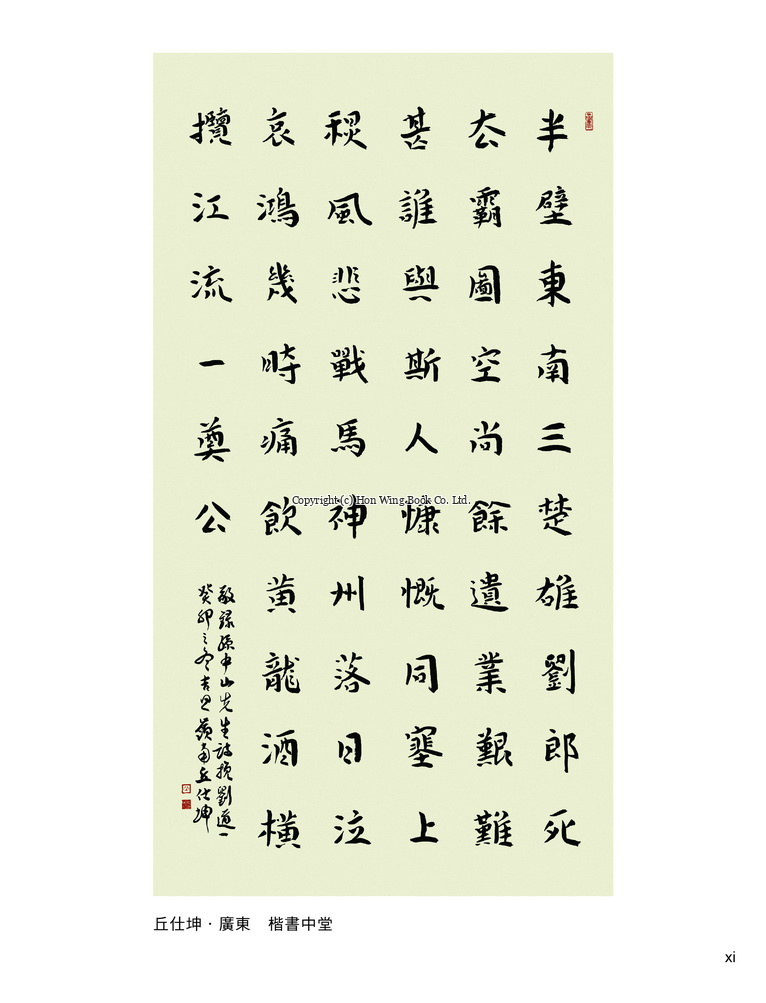 半壁東南三楚雄劉郎死
厺霸圖空尚餘遺業艱難
甚誰與斯人慷慨同塞上
秋風悲戰馬神州落日泣
哀鴻幾時痛飲黃龍酒橫
攬江流一奠公
敬錄孫中山先生詩挽劉道一
癸卯之冬吉旦嶺南丘仕坤
Copyright (c) Hon Wing Book Co. Ltd.
丘仕坤·廣東　楷書中堂
xi